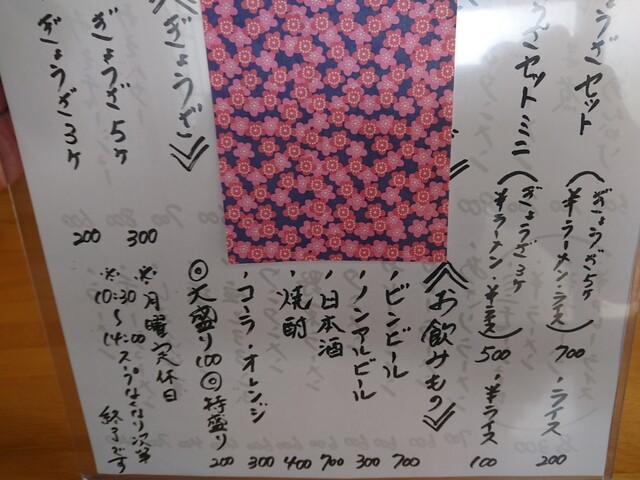 ょうざセット（ぎょうざ5ヶ 半ラーメン・ライス）700 ・ライス 200
うざセットミニ（ぎょうざ3ヶ 半ラーメン・半ライス）500 ・半ライス 100
≪お飲みもの≫
・ビンビール 700
・ノンアルビール 300
・日本酒 700
・焼酎 400
・コーラ・オレンジ 300
◎大盛り100 ◎特盛り 200
≪ぎょうざ≫
ぎょうざ5ヶ 300
ぎょうざ3ヶ 200
※月曜定休日
※10:30〜14:00スープなくなり次第終了です